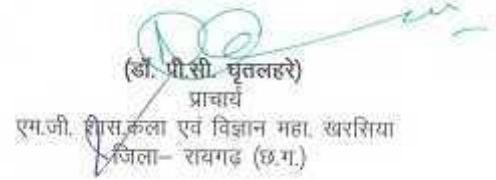 (डॉ. पी.सी. घृतलहरे)
प्राचार्य
एम.जी. शास.कला एवं विज्ञान महा. खरसिया
जिला– रायगढ़ (छ.ग.)